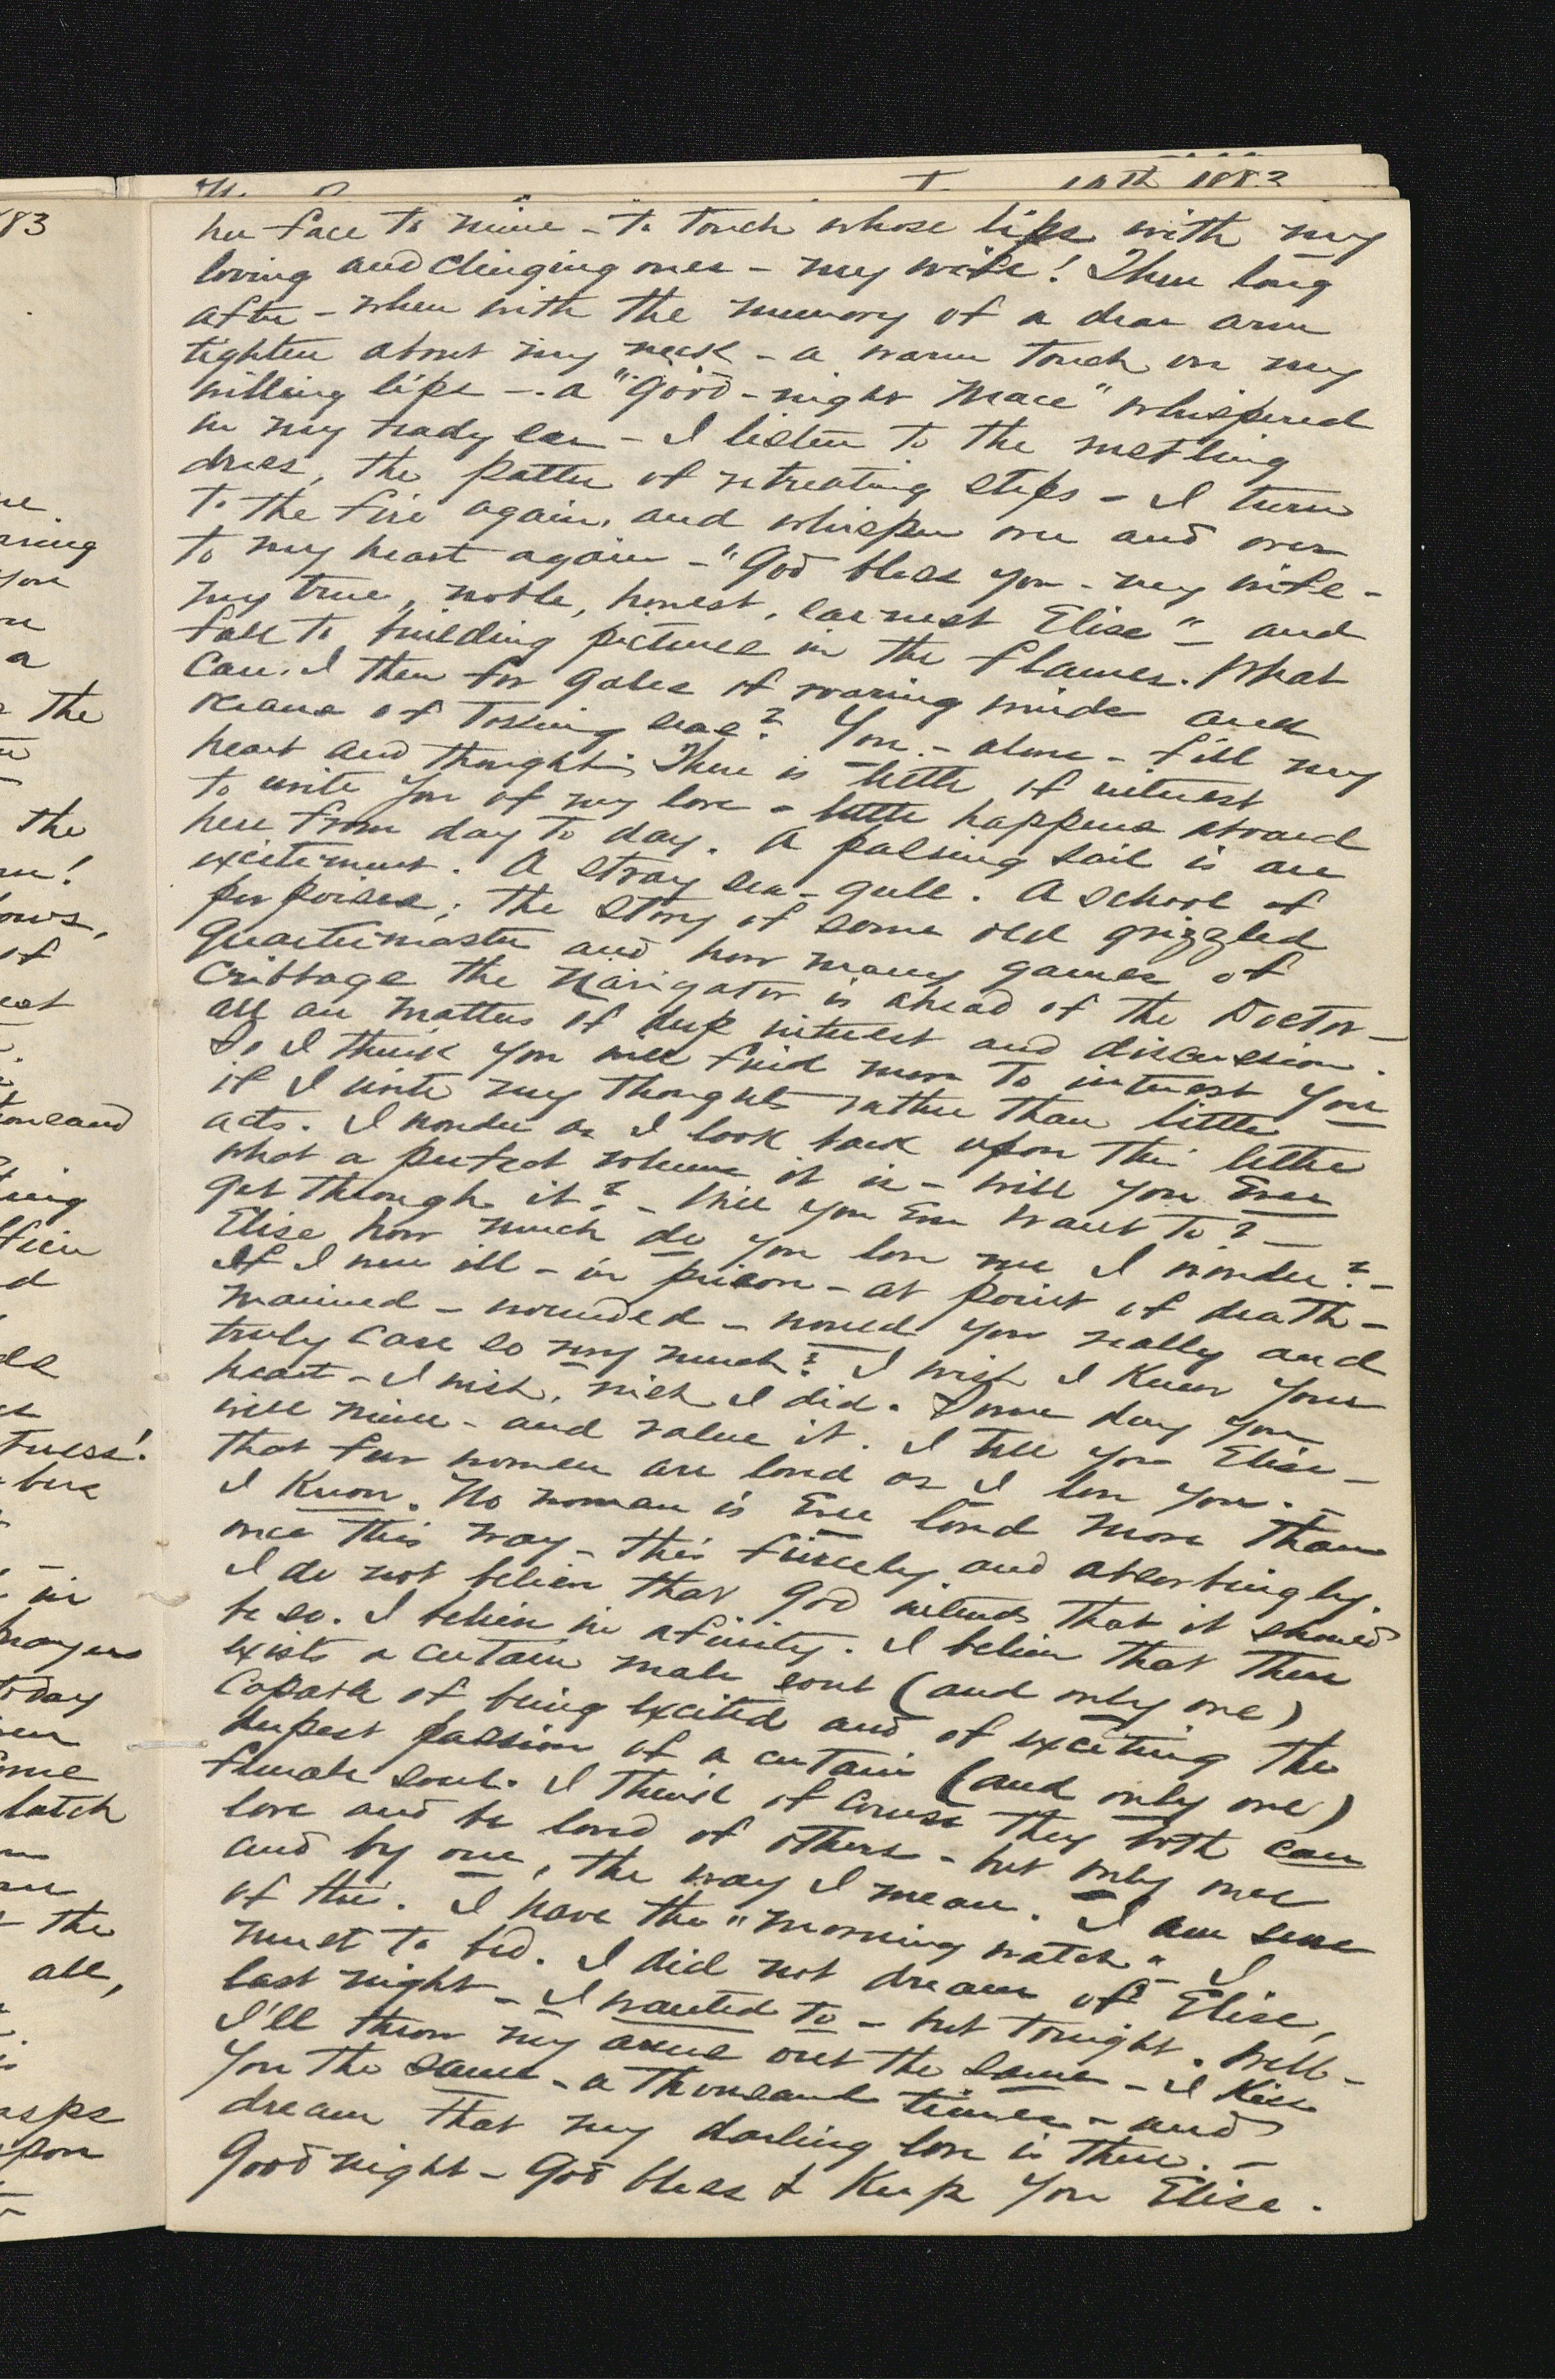 10th 1883
her face to mine - to touch whose lips with my
loving and clinging ones - my wife! Then long
after - when with the memory of a dear arm
tighten about my neck - a warm touch on my
willing lips - a "good-night Mace" whispered
in my ready ear - I listen to the rustling
dress, the patter of retreating steps - I turn
to the fire again, and whisper over and over
to my heart again - "God bless you - my wife -
my true, noble, honest, earnest Elise" - and
fall to building pictures in the flames. What
care I then for gales of roaring winds and
oceans of tossing seas? You - alone - fill my
heart and thought. There is little of interest
to write you of my love - little happens aboard
here from day to day. A passing sail is an
excitement. A stray sea-gull. A school of
porpoises; the story of some old grizzled
Quartermaster and how many games of
Cribbage the Navigator is ahead of the Doctor -
all are matters of deep interest and discussion.
So I think you will find more to interest you
if I write my thoughts rather than little
acts. I wonder as I look back upon this letter
what a perfect volume it is - will you ever
get through it? - Will you ever want to? -
Elise how much do you love me I wonder? -
If I were ill - in prison - at point of death -
maimed - wounded - would you really and
truly care so very much? I wish I knew your
heart - I wish, wish I did. Some day you
will mine - and value it. I tell you Elise -
that few women are loved as I love you. -
I know. No woman is ever loved more than
once this way - this fiercely and absorbingly.
I do not believe that God intends that it should
be so. I believe in afinity. I believe that there
exists a certain male soul (and only one)
capable of being excited and of exciting the
deepest passion of a certain (and only one)
female soul. I think of course they both can
love and be loved of others - but only once
and by one, the way I mean. I am sure
of this. I have the "morning watch" - I
must to bed. I did not dream of Elise,
last night - I wanted to - but tonight. Well -
I'll throw my arms out the same - I kiss
you the same - a thousand times - and
dream that my darling love is there. -
Good night - God bless & Keep you Elise.